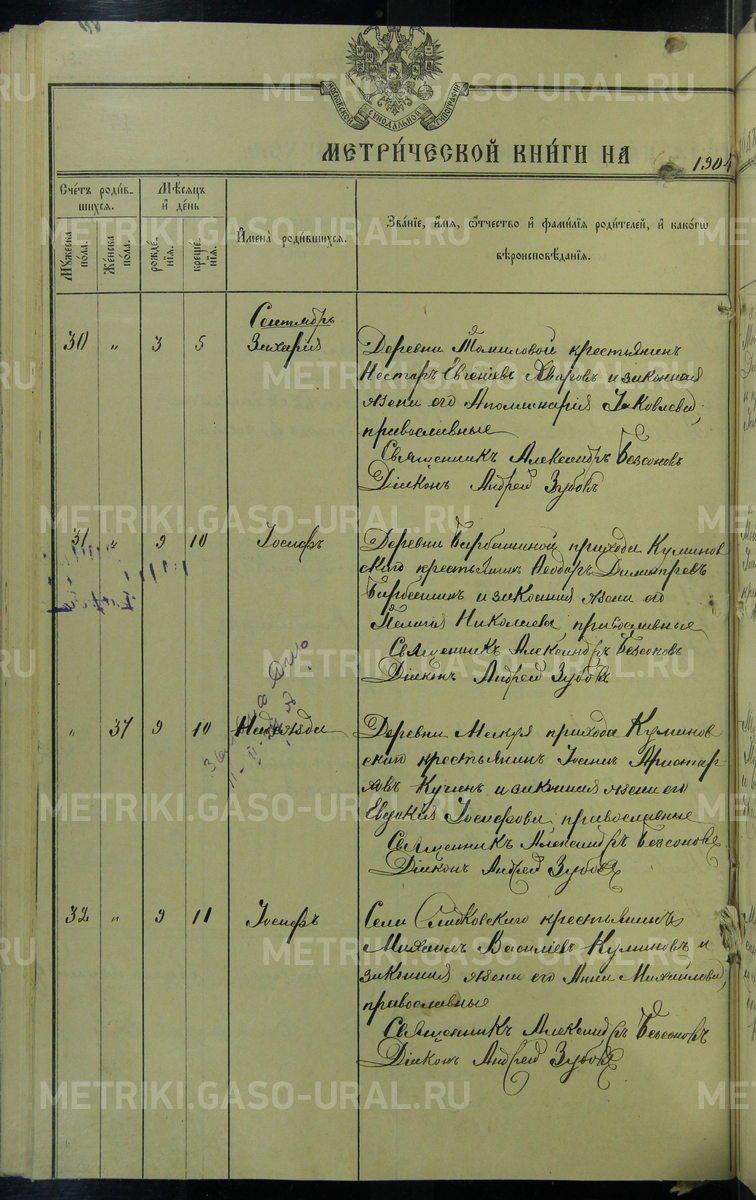 МОСКОВСКОЙ СѴНОДАЛЬНОЙ ТИПОГРАФІИ
МЕТРИ́ЧЕСКОЙ КНИ́ГИ НА 1904
Сче́тъ роди́вшихся.
Мѣ́сяцъ и де́нь
Му́жеска по́ла.
Же́нска по́ла.
рожде́нїя.
креще́нїя.
Имена̀ роди́вшихся.
Зва́нїе, и́мя, ѻ҆́тчество и фами́лїя роди́телей, и како́гѡ
вѣроисповѣ́данїя.
Сентябрь
30 „ 3 5 Захарія
Деревни Томиловой крестьянинъ
Несторъ Евгеніевъ Уваровъ и законная
жена его Аполинарія Іаковлева,
православные
Священникъ Александръ Безсоновъ
Діаконъ Андрей Зубовъ
31 „ 9 10 Іосифъ
Деревни Барбашиной прихода Куминов
скаго крестьянинъ Ѳеодоръ Димитріевъ
Барбашинъ и законная жена его
Пелагія Николаева православные
Священникъ Александръ Безсоновъ
Діаконъ Андрей Зубовъ
„ 37 9 10 Надежда
Деревни прихода Куминов
скаго крестьянинъ Іоаннъ Аристар
ховъ Кучинъ и законная жена его
Евдокія Іосифова православные
Священникъ Александръ Безсоновъ
Діаконъ Андрей Зубовъ
32 „ 9 11 Іосифъ
Села Сладковскаго крестьянинъ
Михаилъ Василіевъ Куминовъ и
законная жена его Анна Михайлова,
православные
Священникъ Александръ Безсоновъ
Діаконъ Андрей Зубовъ
METRIKI.GASO-URAL.RU